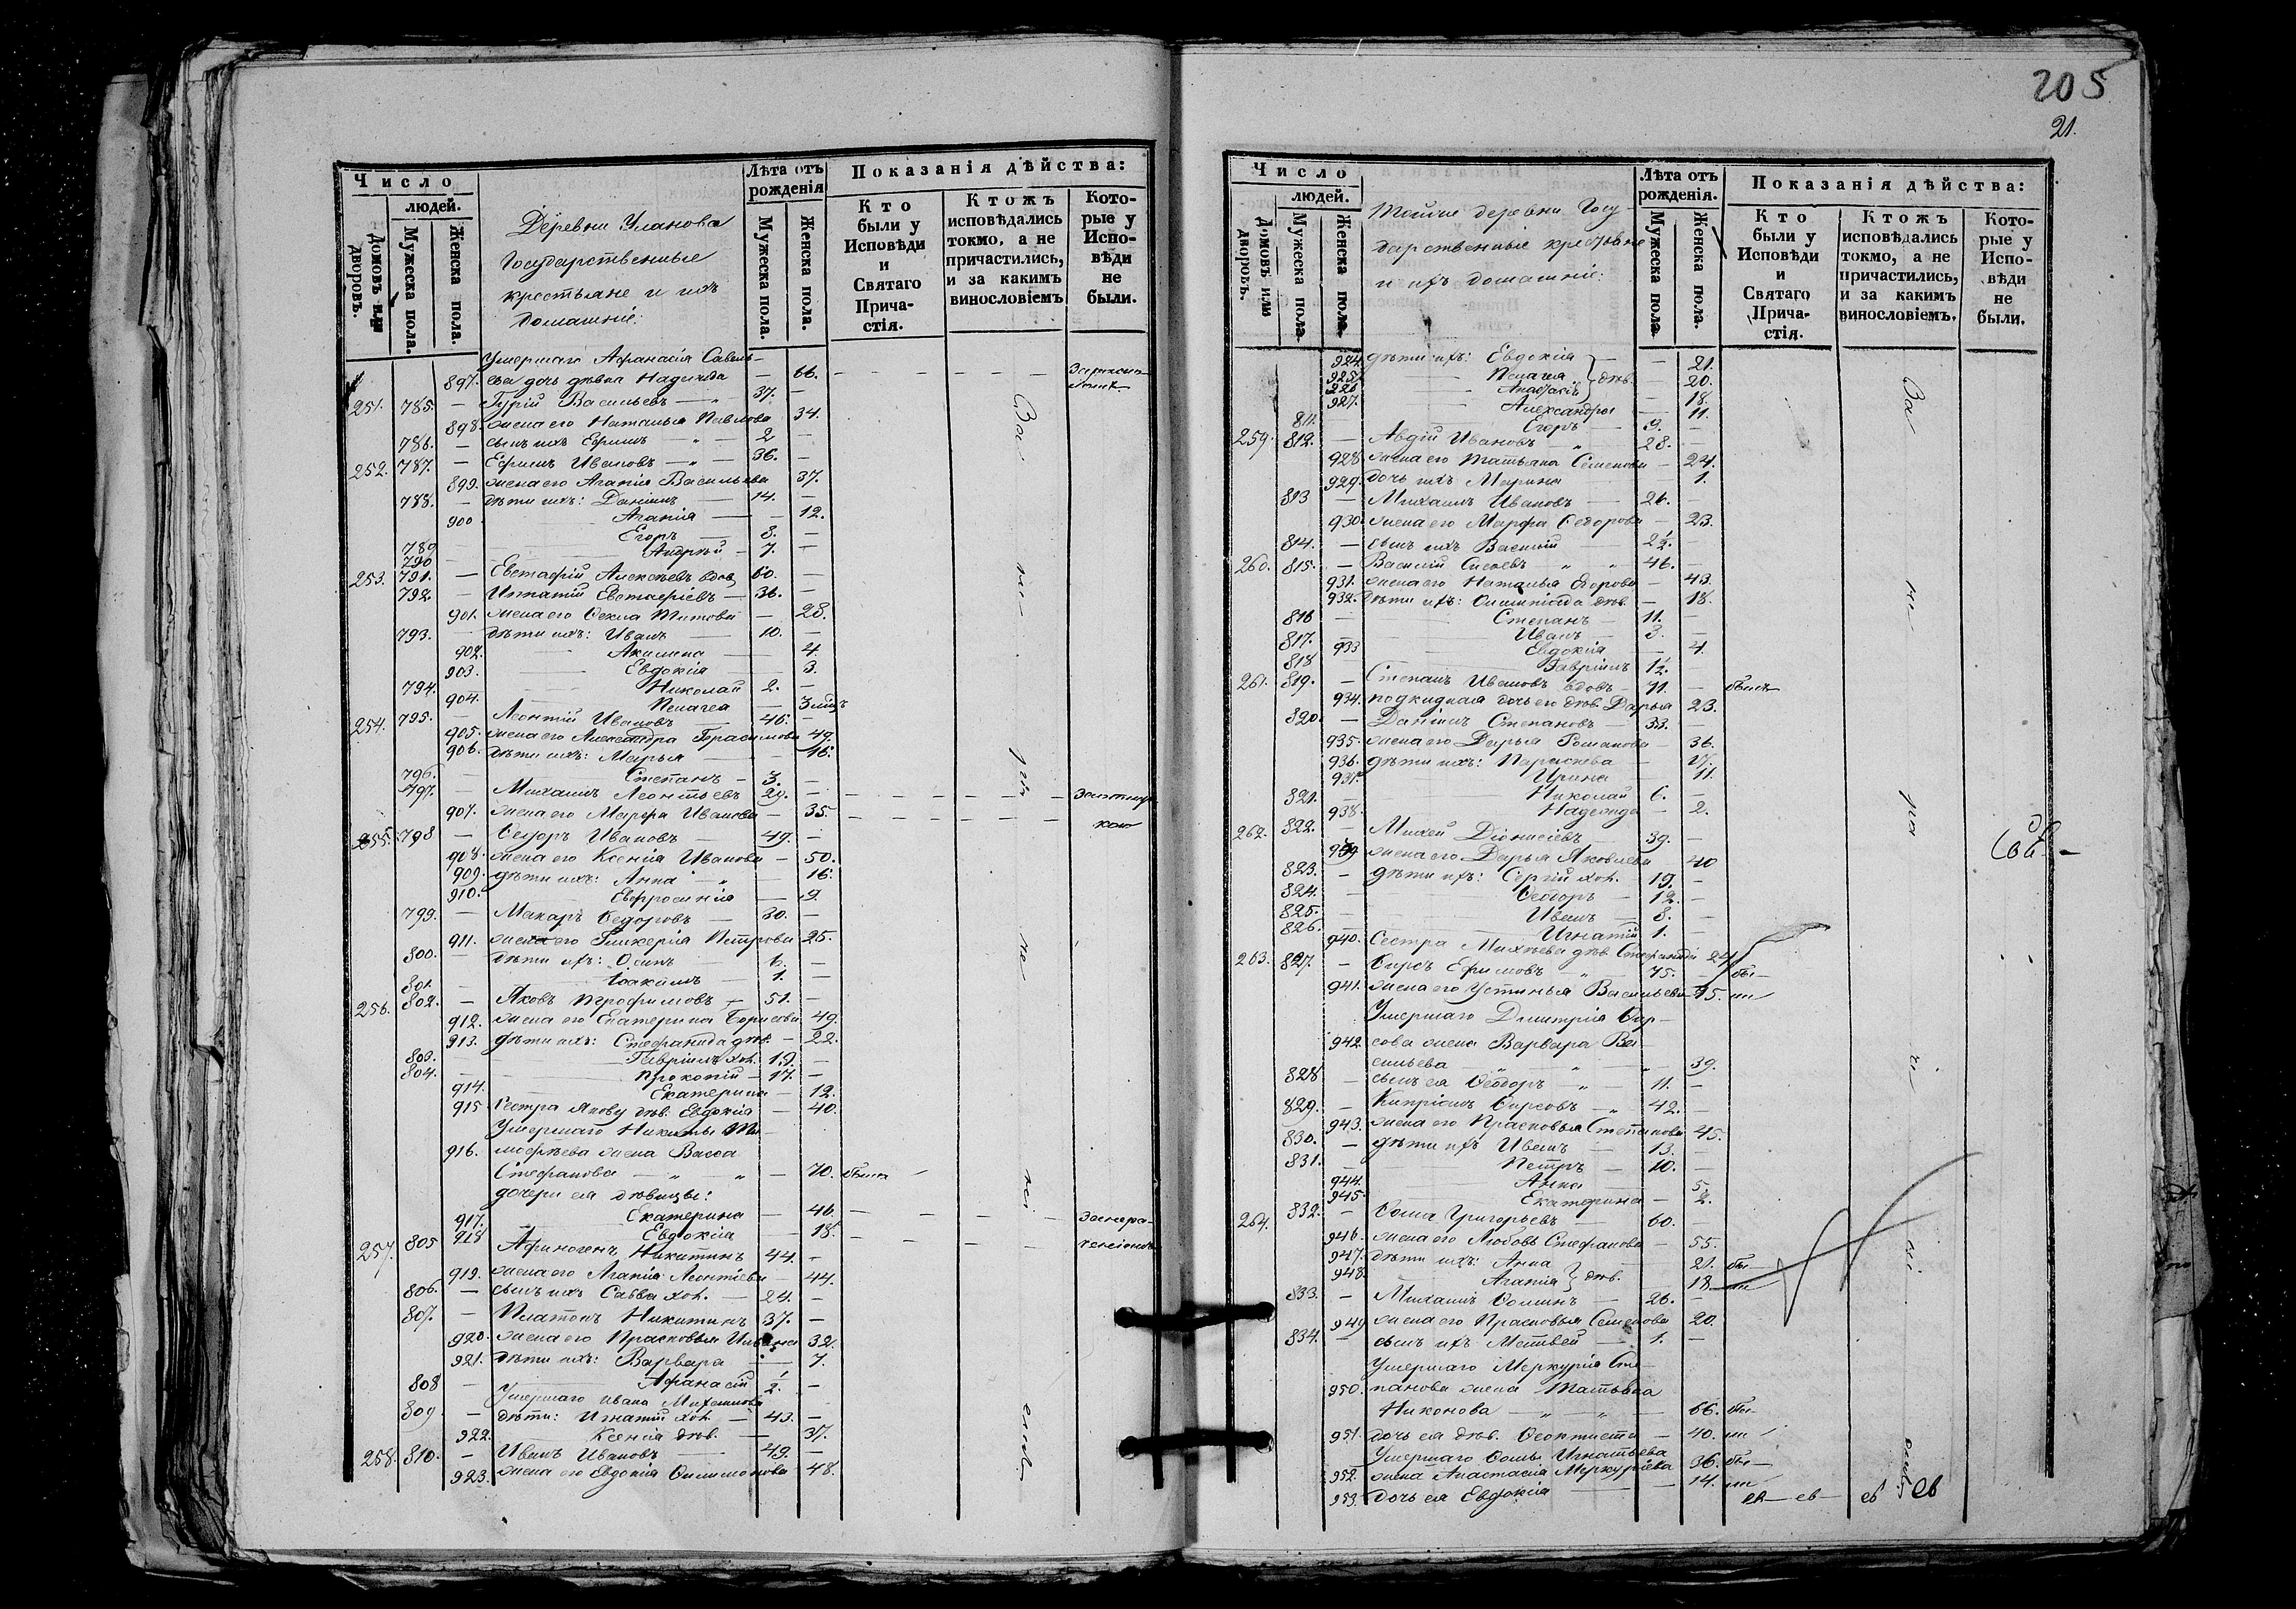 205
21.
Число
людей.
домовъ или дворовъ.
Мужеска пола.
Женска пола.
Деревни Уланова
Государственные
крестьяне и ихъ
домашніе:
Лѣта отъ рожденія
Мужеска пола.
Женска пола.
Показанія дѣйства:
Кто были у Исповѣди и Святаго Причастія.
Ктожъ исповѣдались токмо, а не причастились, и за какимъ винословіемъ
Которые у Исповѣди не были.
Умершаго Афанасія Савель-
897. ева дочь дѣвка Надежда — 66.
251. 785. — Гурій Васильевъ — 37. —
898. жена его Наталья Павлова 34.
786. — сынъ ихъ Ефимъ — 2 —
252. 787. — Ефимъ Ивановъ — 36. —
899. жена его Агапія Васильева 37.
788. — дѣти ихъ: Даніилъ — 14. —
900 Агапія — 12.
789 Егоръ — 8. —
790 Андрей — 7. —
253. 791. — Евстафій Алексѣевъ вдов. 60. —
792. — Игнатій Евстафіевъ — 36. —
901. жена его Фекла Титова — 28.
793. — дѣти ихъ: Иванъ — 10. —
902. Акилина — 4.
903. Евдокія — 3.
794. Николай 2. —
904. Пелагея —
254. 795. — Леонтій Ивановъ — 46. —
905. жена его Александра Герасимова 49.
906. дѣти ихъ: Марья — 16.
796. — Степанъ — 3. —
797. — Михаилъ Леонтьевъ 29. —
907. жена его Марфа Иванова — 35.
255. 798 — Ѳедоръ Ивановъ — 49. —
908. жена его Ксенія Иванова — 50.
909. дѣти ихъ: Анна — 16.
910. Евфросинія — 9.
799. — Макаръ Ѳедоровъ — 30. —
911. жена его Гликерія Петрова 25.
800. — дѣти ихъ: Осипъ — 6. —
801. Іоакимъ — 1. —
256. 802. — Яковъ Трофимовъ — 51. —
912. жена его Екатерина Борисова 49.
913. дѣти ихъ: Стефанида дѣв. — 22.
803. Гавріилъ хол. 19. —
804. Прокопій — 17. —
914. Екатерина — 12.
915. Сестра Якову дѣв. Евдокія — 40.
Умершаго Никиты Ти-
916. мофѣева жена Васса
Стефанова — 70. была
дочери ея дѣвицы:
917. Екатерина — 46.
918 Евдокія — 18.
257. 805 Афиногенъ Никитинъ 44. —
919. жена его Агапія Леонтіева — 44.
806. — сынъ ихъ Савва хол. — 24. —
807. — Платонъ Никитинъ 37. —
920. жена его Прасковья 32.
921. дѣти ихъ: Варвара — 7.
808 — Афанасій ½. —
Умершаго Ивана Михаилова
809. — дѣти: Игнатій хол. — 43. —
922. Ксенія дѣв. — 37.
258. 810. — Иванъ Ивановъ — 49. —
923. жена его Евдокія Филимонова 48.
Число
людей.
Домовъ или дворовъ.
Мужеска пола
Женска пола.
Тойже деревни Госу-
дарственніе крестьяне
и ихъ домашніе:
Лѣта отъ рожденія.
Мужеска пола
Женска пола.
Показанія дѣйства:
Кто были у Исповѣди и Святаго Причастія.
Ктожъ исповѣдались токмо, а не причастились, и за какимъ винословіемъ.
Которые у Исповѣди не были.
924. дѣти ихъ: Евдокія — 21.
925. Пелагея } дѣв. — 20.
926. Анастасія — 18.
927. Александра — 11.
811. Егоръ — 9. —
259. 812. — Авдій Ивановъ — 28. —
928. жена его Татьяна Семенова — 24.
929. дочь ихъ Марина — 1.
813 — Михаилъ Ивановъ — 26. —
930. жена его Марфа Ѳедорова — 23.
814. — сынъ ихъ Василій — 2½. —
260. 815. — Василій Сисоевъ 46. —
931. жена его Наталья Егорова — 43.
932. дѣти ихъ: Олимпіада дѣв. — 18.
816 — Степанъ — 11. —
817. — Иванъ — 3. —
933 Евдокія — 4.
818 Гавріилъ 1½.
261. 819. — Степанъ Ивановъ вдовъ — 71. — былъ
934. подкидная дочь его дѣв. Дарья 23.
820. — Даніилъ Степановъ — 33. —
935. жена его Дарья Романова — 36.
936. дѣти ихъ: Параскева — 17.
937. Ирина — 11.
821. — Николай 6. —
938. Надежда — 2.
262. 822. — Михей Діонисіевъ — 39. —
939 жена его Дарья Яковлева — 40
823. — дѣти ихъ: Сергій хол. 19. —
824. — Ѳеодоръ — 12. —
825. — Иванъ — 8. —
826. — Игнатій 1. —
940. Сестра Михѣева дѣв. Стефанида 24
263. 827. — Фирсъ Ефимовъ — 75. —
941. жена его Устинья Васильева 75.
Умершаго Димитрія Фир-
942. сова жена Варвара Ва-
сильева — 39.
828 — сынъ ея Ѳеодоръ — 11. —
829. — Кипріянъ Фирсовъ — 42. —
943. жена его Прасковья Степанова 45.
830. — дѣти ихъ Иванъ — 13. —
831. — Петръ — 10. —
944. Анна — 5.
945. Екатерина — 2.
264. 832. — Ѳома Григорьевъ — 60. —
946. жена его Любовь Стефанова — 55.
947. дѣти ихъ: Анна — 21.
948. Агапія } дѣв. — 18
833. — Михаилъ Ѳоминъ — 26. —
949 жена его Прасковья Семенова 20.
834. — сынъ ихъ Матвей — 1. —
Умершаго Меркурія Сте-
950. панова жена Татьяна
Никонова — 66.
951. дочь ея дѣв. Ѳеоктиста — 40.
Умершаго Ѳомы Игнатьева
952. жена Анастасія Меркуріева 36.
953. дочь ея Евдокія — 14.